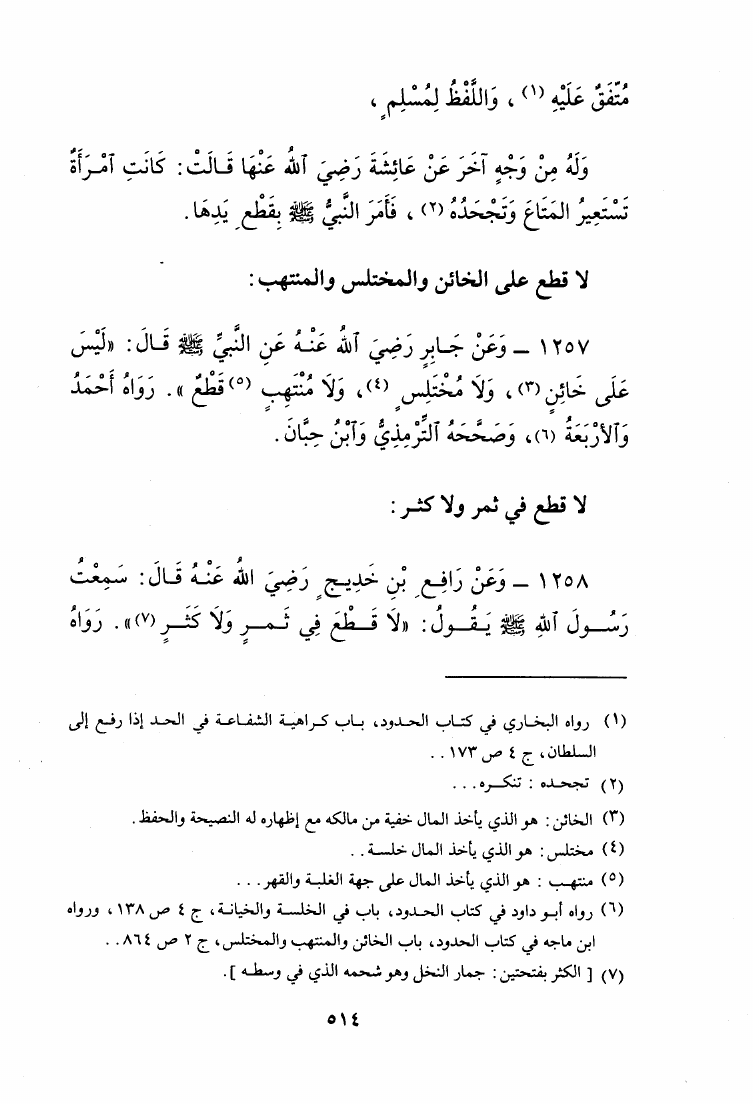 مُتَّفَقٌ عَلَيْهِ (١) ، وَاللَّفْظُ لِمُسْلِمٍ ،
وَلَهُ مِنْ وَجْهٍ آخَرَ عَنْ عَائِشَةَ رَضِيَ ٱللهُ عَنْهَا قَالَتْ : كَانَتِ ٱمْرَأَةٌ
تَسْتَعِيرُ المَتَاعَ وَتَجْحَدُهُ (٢) ، فَأَمَرَ النَّبِيُّ ﷺ بِقَطْعِ يَدِهَا .
لا قطع على الخائن والمختلس والمنتهب :
١٢٥٧ ــ وَعَنْ جَابِرٍ رَضِيَ ٱللهُ عَنْهُ عَنِ النَّبِيِّ ﷺ قَالَ : «لَيْسَ
عَلَى خَائِنٍ (٣) ، وَلَا مُخْتَلِسٍ (٤) ، وَلَا مُنْتَهِبٍ (٥) قَطْعٌ » . رَوَاهُ أَحْمَدُ
وَٱلأَرْبَعَةُ (٦) ، وَصَحَّحَهُ ٱلتِّرْمِذِيُّ وَٱبْنُ حِبَّانَ .
لا قطع في ثمر ولا كثر :
١٢٥٨ ــ وَعَنْ رَافِعِ بْنِ خَدِيجٍ رَضِيَ ٱللهُ عَنْهُ قَالَ : سَمِعْتُ
رَسُولَ ٱللهِ ﷺ يَقُولُ : «لَا قَطْعَ فِي ثَمَرٍ وَلَا كَثَرٍ (٧)» . رَوَاهُ
(١) رواه البخاري في كتاب الحدود، باب كراهية الشفاعة في الحد إذا رفع إلى
السلطان، ج ٤ ص ١٧٣ . .
(٢) تجحده : تنكره . . .
(٣) الخائن : هو الذي يأخذ المال خفية من مالكه مع إظهاره له النصيحة والحفظ .
(٤) مختلس : هو الذي يأخذ المال خلسة . .
(٥) منتهب : هو الذي يأخذ المال على جهة الغلبة والقهر . . .
(٦) رواه أبو داود في كتاب الحدود، باب في الخلسة والخيانة، ج ٤ ص ١٣٨ ، ورواه
ابن ماجه في كتاب الحدود، باب الخائن والمنتهب والمختلس، ج ٢ ص ٨٦٤ . .
(٧) [ الكثر بفتحتين : جمار النخل وهو شحمه الذي في وسطه ] .
٥١٤